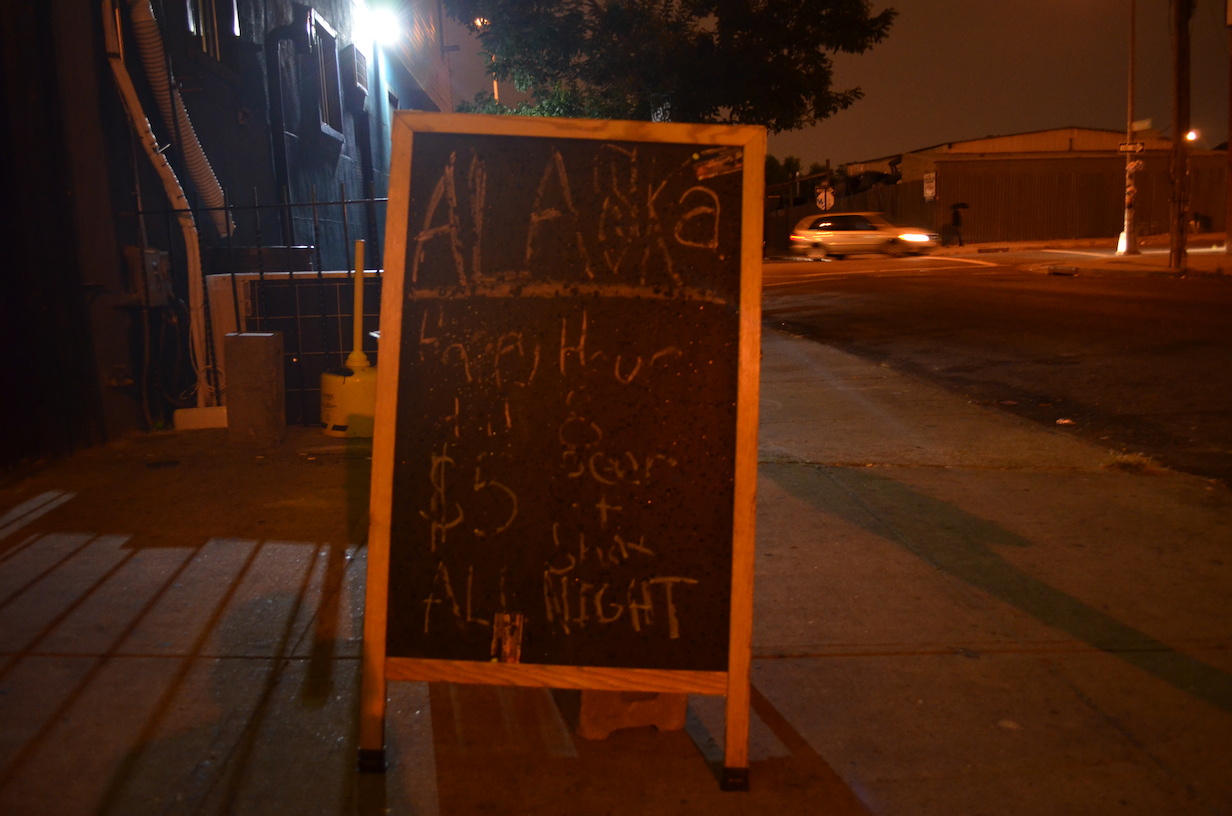 ALASKa
Happy Hour
till 8
$5 Beer
+
Shot
ALL NIGHT